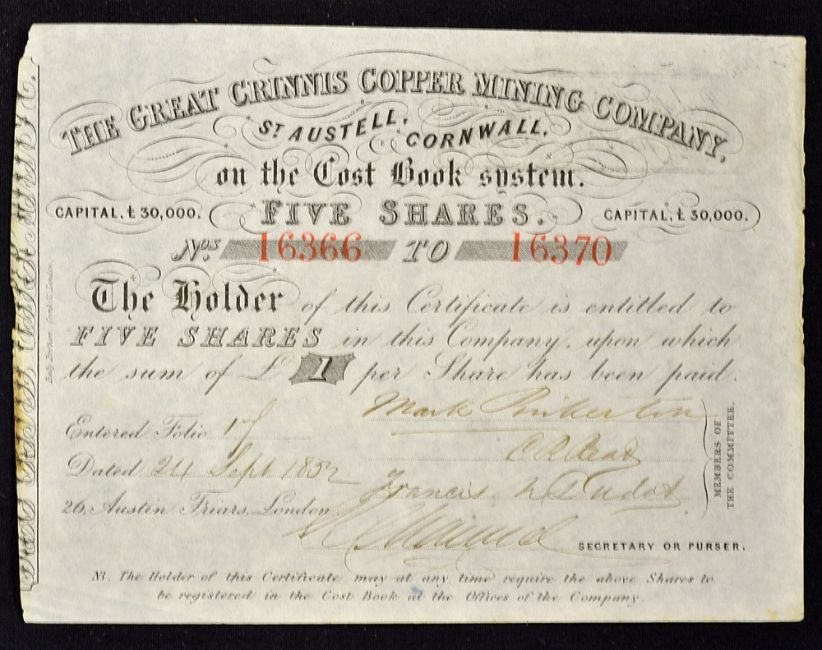 THE GREAT CRINNIS COPPER MINING COMPANY,
ST AUSTELL, CORNWALL,
on the Cost Book system.
CAPITAL, £30,000. FIVE SHARES. CAPITAL, £30,000.
Nos. 16366 TO 16370
The Holder of this Certificate is entitled to
FIVE SHARES in this Company, upon which
the sum of £ 1 per Share has been paid.
Mark
Entered Folio 17
Dated 24 Sept 1852
Francis
26, Austin Friars, London.
MEMBERS OF
THE COMMITTEE.
SECRETARY OR PURSER.
NB. The Holder of this Certificate may at any time require the above Shares to
be registered in the Cost Book at the Offices of the Company.